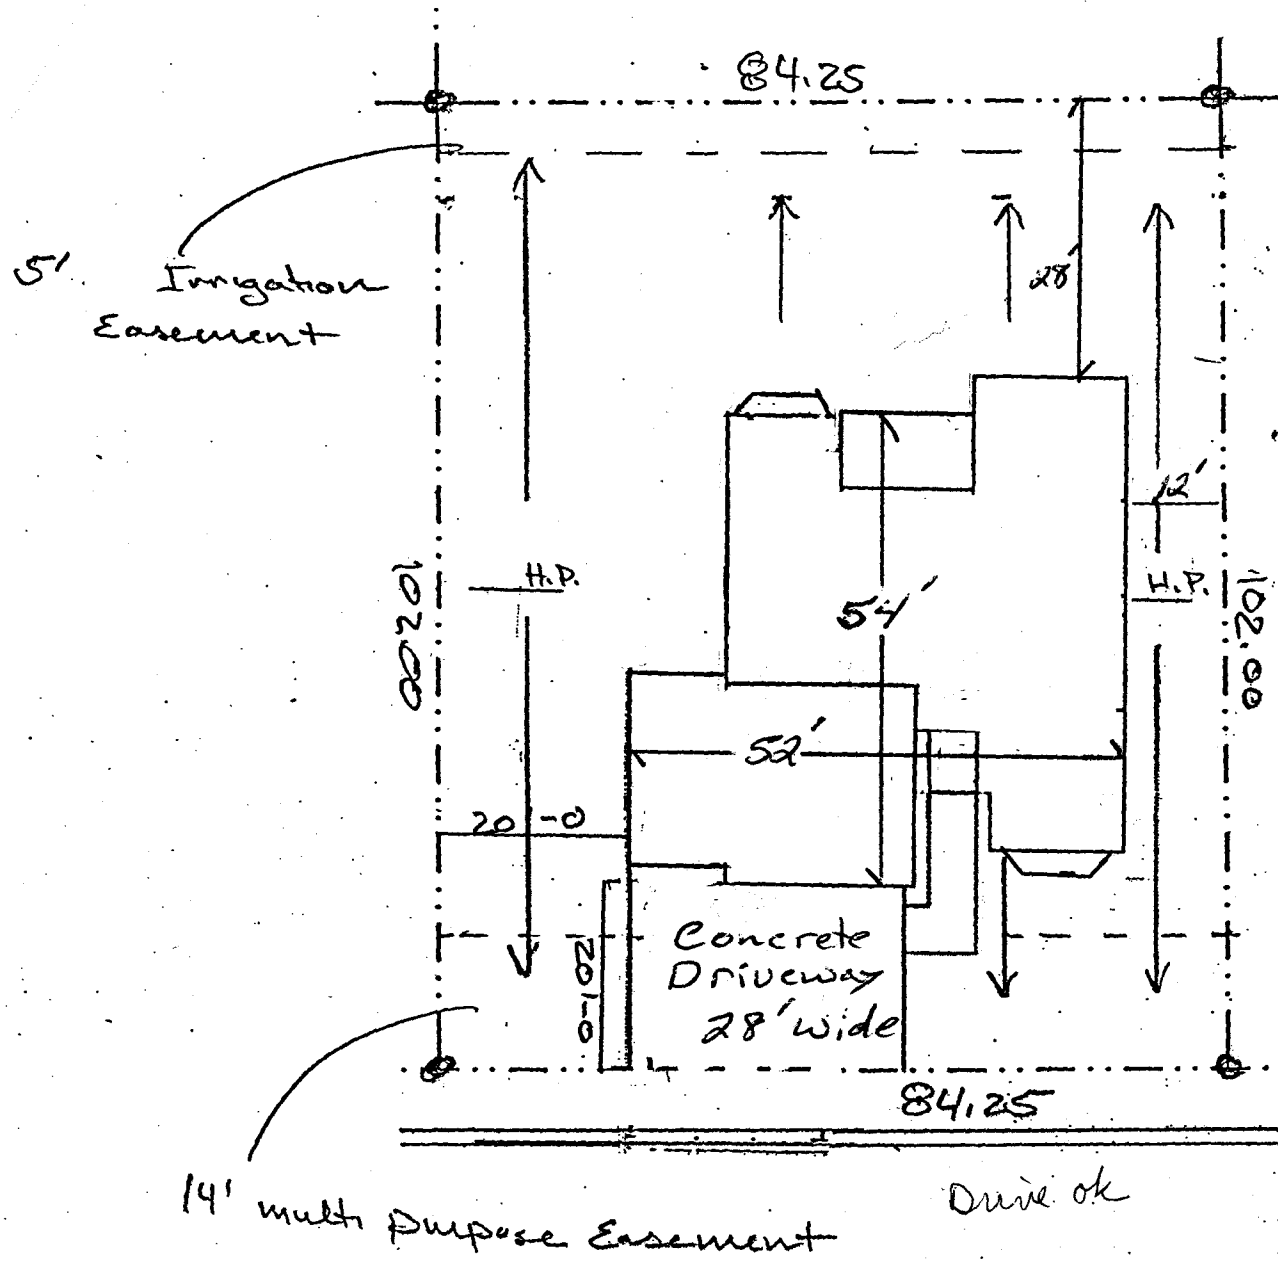 84.25
28'
5' Irrigation
Easement
12'
H.P.
H.P.
102.00
102.00
54'
52'
20'-0
20'-0
Concrete
Driveway
28' wide
84.25
14' multi purpose Easement
Drive ok